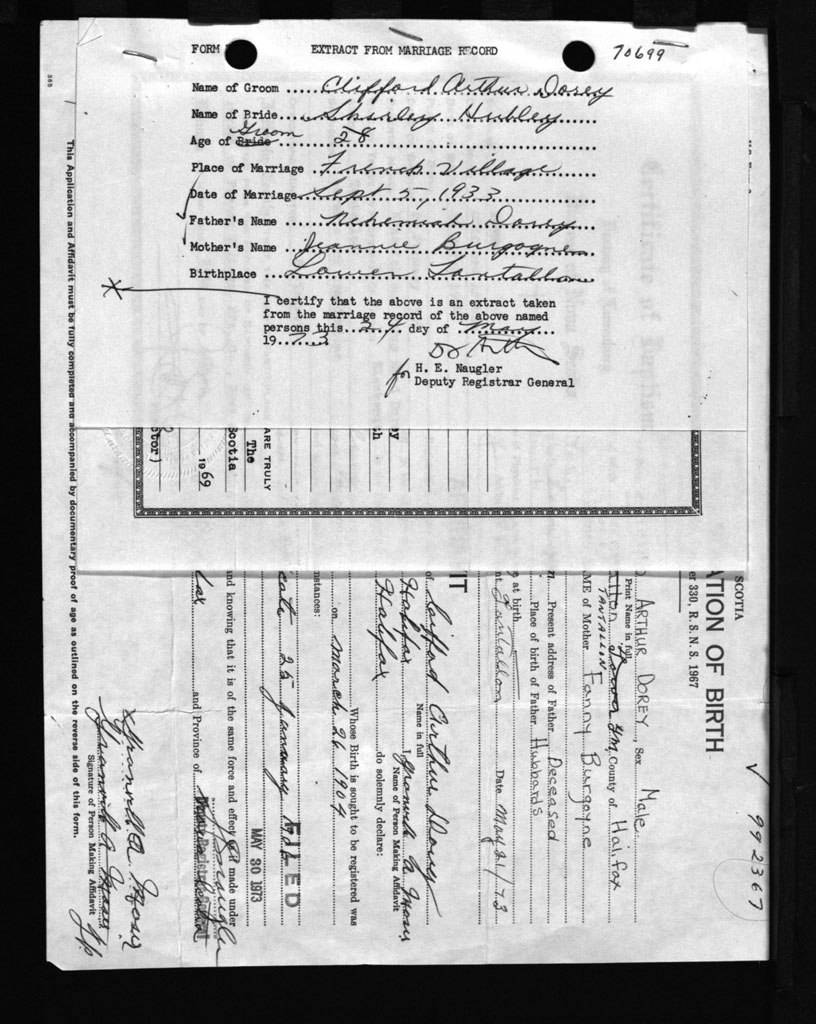 FORM
EXTRACT FROM MARRIAGE RECORD
70699
Name of Groom ..... Clifford Arthur Dorey
Name of Bride ..... Shirley Hubley
Groom
Age of Bride ..... 28
Place of Marriage . French Village
Date of Marriage . Sept 5, 1933
Father's Name ..... Nehemiah Dorey
Mother's Name ... Jeannie Burgoyne
Birthplace .... Lower Tantallon
I certify that the above is an extract taken
from the marriage record of the above named
persons this...24...day of ...May...
1973
for H. E. Naugler
Deputy Registrar General
This Application and Affidavit must be fully completed and accompanied by documentary proof of age as outlined on the reverse side of this form.
by
th
ARE TRULY
The
Scotia
1969
ctor)
992367
SCOTIA
ATION OF BIRTH
er 330, R. S. N. S. 1967
ARTHUR DOREY, Sex Male
Print Name in full
TANTALLIN
County of Halifax
ME of Mother Fanny Burgoyne
Present address of Father Deceased
Place of birth of Father Hubbards
e at birth
nt Tantallon Date May 21/73
IT
of Clifford Arthur Dorey
Name in full
Halifax I, Granville A Moser
Name of Person Making Affidavit
Halifax do solemnly declare:
Whose Birth is sought to be registered was
on March 26 1904
mstances:
cate 25 January
FILED
MAY 30 1973
and knowing that it is of the same force and effect as if made under
fax and Province of
x Granville A Moser
Granville A Moser
Signature of Person Making Affidavit